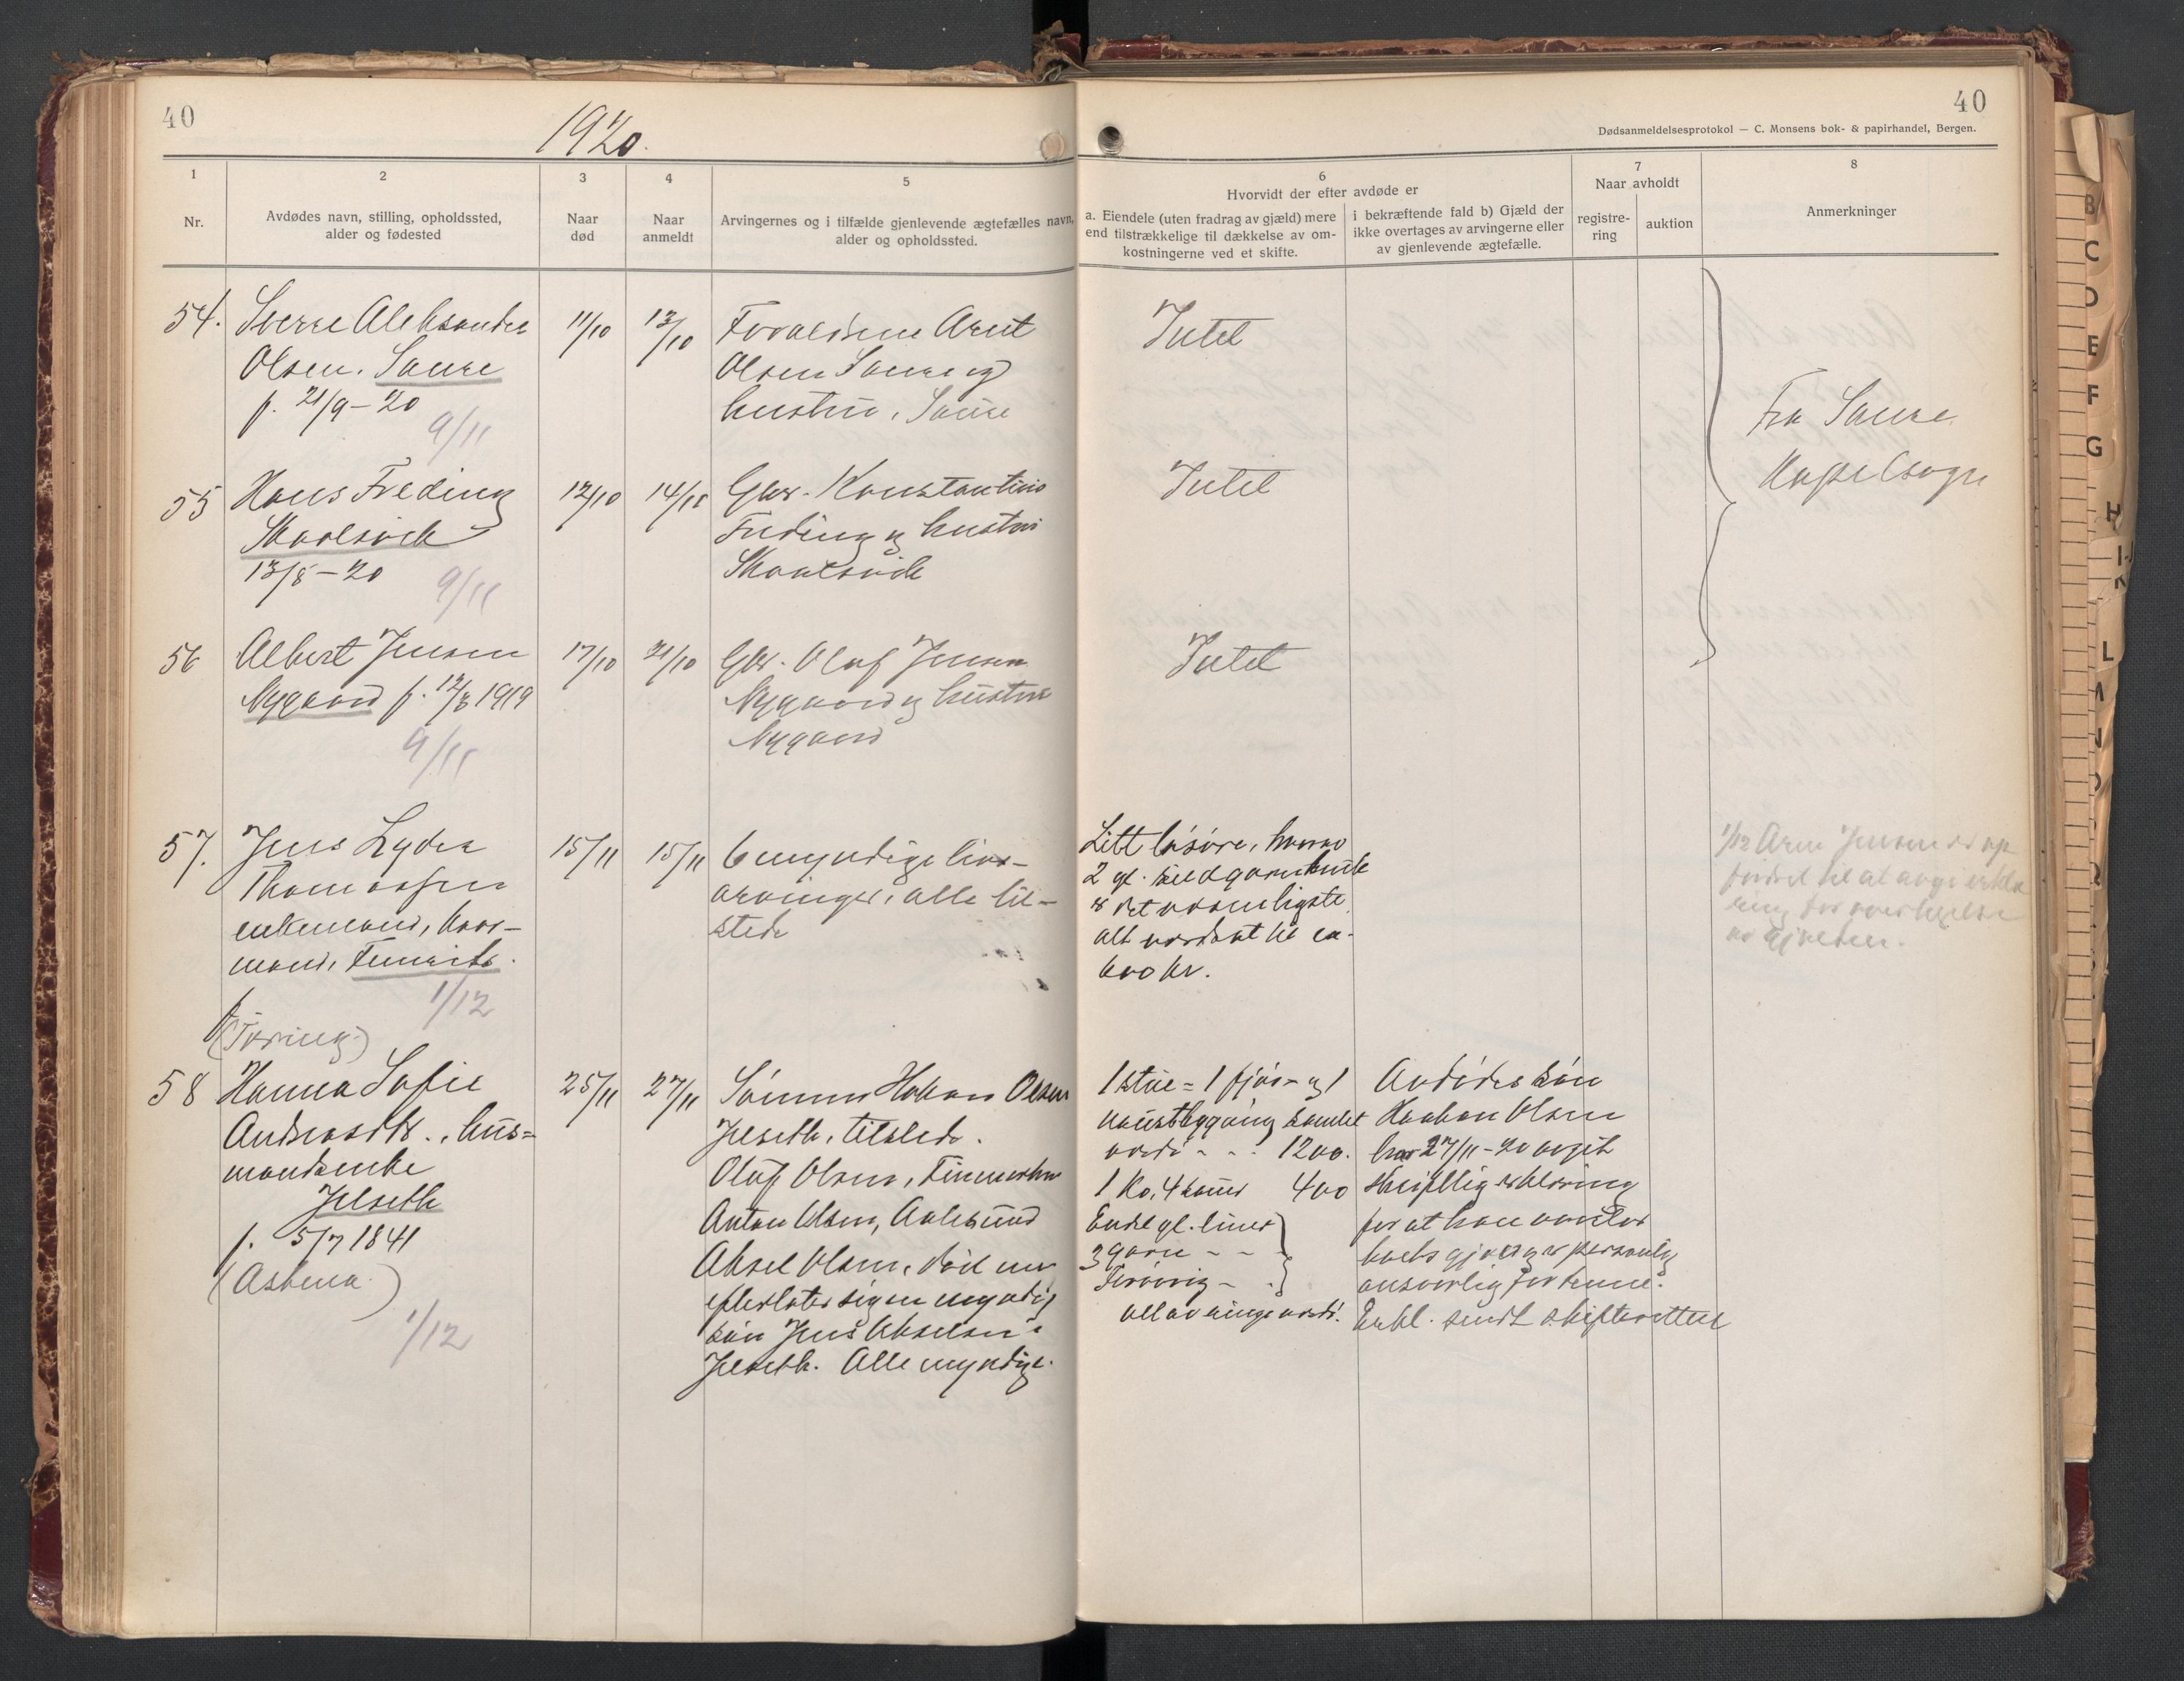 40
1920.
40
Dødsanmeldelsesprotokol — C. Monsens bok- & papirhandel, Bergen.
1
Nr.
2
Avdødes navn, stilling, opholdssted,
alder og fødested
3
Naar
død
4
Naar
anmeldt
5
Arvingernes og i tilfælde gjenlevende ægtefælles navn,
alder og opholdssted.
6
Hvorvidt der efter avdøde er
a. Eiendele (uten fradrag av gjæld) mere
end tilstrækkelige til dækkelse av om-
kostningerne ved et skifte.
i bekræftende fald b) Gjæld der
ikke overtages av arvingerne eller
av gjenlevende ægtefælle.
7
Naar avholdt
registre-
ring
auktion
8
Anmerkninger
54.
Sverre Aleksander
Olsen. Saure
f. 21/9 - 20
9/11
11/10
13/10
Forældrene Arnt
Olsen Saure og
hustru, Saure
Intet
Fra Saure
Kapelsogn
55
Hans Freding
13/8 - 20
9/11
12/10
14/10
Gbr. Konstantius
Freding og hustru
Intet
56
Albert Jensen
Nygaard f. 12/3 1919
9/11
17/10
21/10
Gbr. Olaf Jensen
Nygaard og hustru
Nygaard
Intet
57.
Jens Lyder
Thomassen
enkemand, kaar-
mand,
1/12
15/11
15/11
6 myndige livs-
arvinger, alle til-
stede
Litt løsøre, hvorav
2 gl. sildgarnbruk
er det væsentligste
alt vurdert til ca.
600 kr.
1/12 Arn Jensen er op
fordret til at avgi erklæ
ring for overtagelse
av gjælden.
58
Hanna Sofie
Andersdtr., hus=
mandsenke
Jelseth
f. 5/7 1841
(Astma.)
1/12
25/11
27/11
Sønnen Hakon Olsen
Jelseth, tilstede.
Olaf Olsen,
Anton Olsen, Aalesund
Aksel Olsen, død men
efterlater sig en myndig
søn Jens Akselsen
Jelseth. Alle myndige.
1 stue = 1 fjøs- og 1
naustbygging samlet
værdi - - - 1200.
1 Ko, 4 sauer 400
Endel gl. liner
3 garn - - -
alt av ringe værdi.
Avdødes søn
Haakon Olsen
har 27/11 - 20 avgit
skriftlig erklæring
for at han overtar
boets gjæld og er personlig
ansvarlig for denne.
Erkl. sendt skifteretten